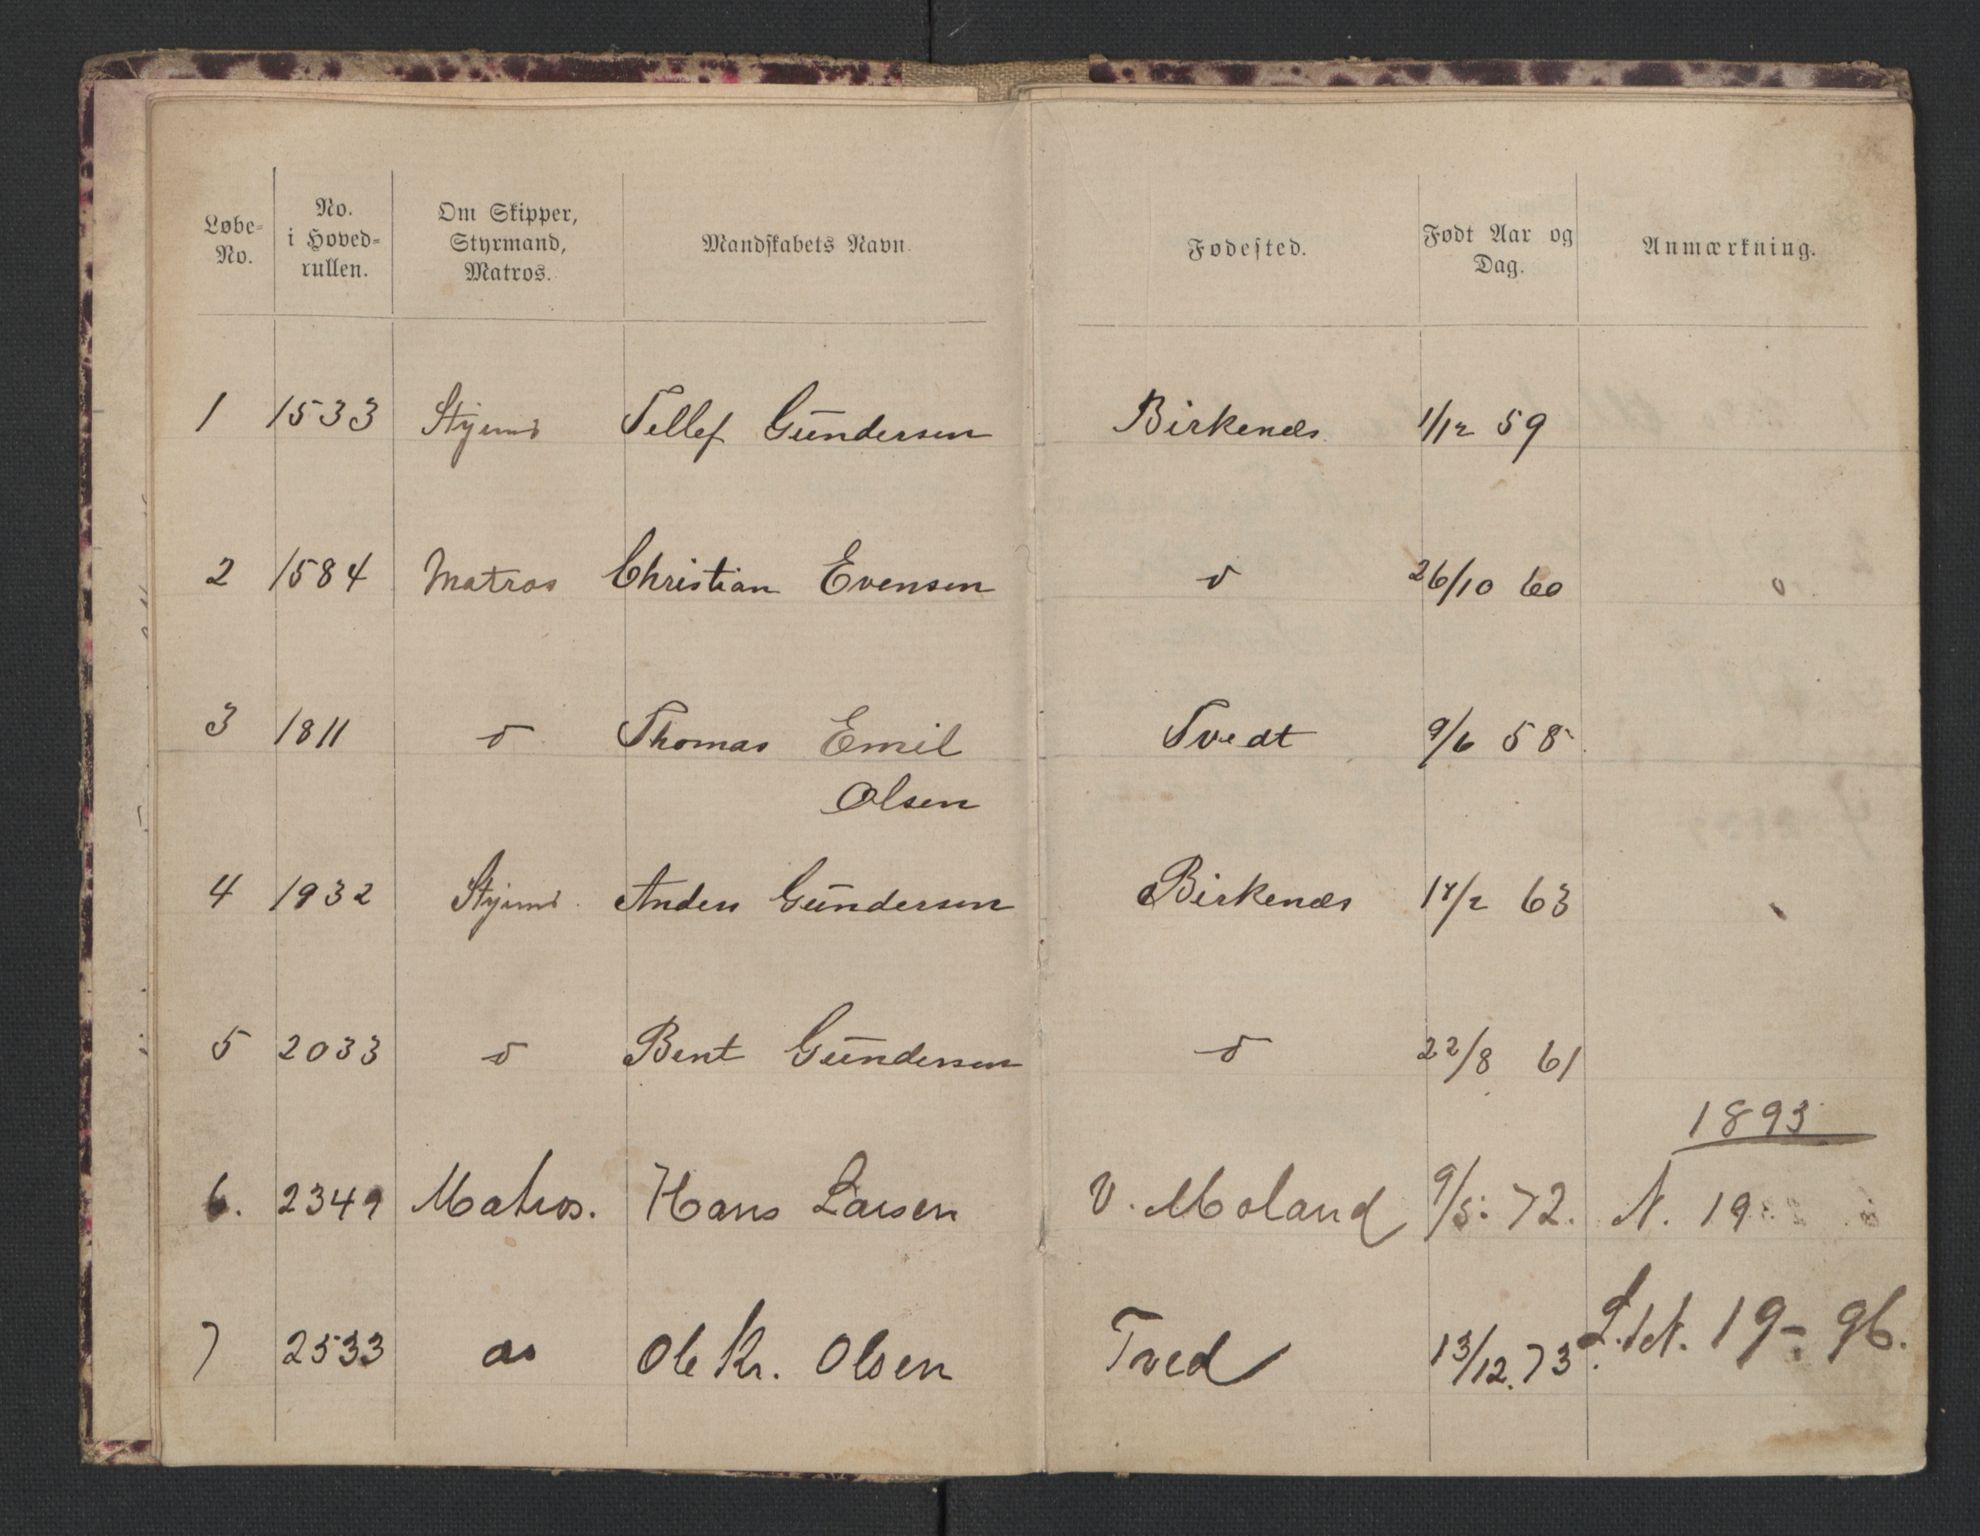 Løbe-No. No. i Hoved-rullen. Om Skipper, Styrmand, Matros. Mandskabets Navn. Fødested. Født Aar og Dag. Anmærkning.
1 1533 Styrmd Tellef Gundersen Birkenæs 1/12 59
2 1584 Matros Christian Evensen do 26/10 60
3 1811 do Thomas Emil Tvedt 9/6 58
Olsen
4 1932 Styrmd. Anders Gundersen Birkenæs /2 63
5 2033 do Bent Gundersen do 22/8 61
1893
6. 2349 Matros. Hans Larsen V. Moland 9/5: 72. N. 19
7 2533 do Ole Kr. Olsen Tved 13/12. 73 19-96.